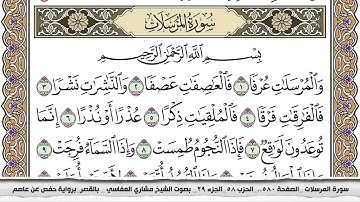 سُورَةُ المُرْسَلَات
بِسْمِ اللَّهِ الرَّحْمَٰنِ الرَّحِيمِ
وَالْمُرْسَلَاتِ عُرْفًا ١ فَالْعَاصِفَاتِ عَصْفًا ٢ وَالنَّاشِرَاتِ نَشْرًا ٣
فَالْفَارِقَاتِ فَرْقًا ٤ فَالْمُلْقِيَاتِ ذِكْرًا ٥ عُذْرًا أَوْ نُذْرًا ٦ إِنَّمَا
تُوعَدُونَ لَوَاقِعٌ ٧ فَإِذَا النُّجُومُ طُمِسَتْ ٨ وَإِذَا السَّمَاءُ فُرِجَتْ ٩
سورة المرسلات .. الصفحة ٥٨٠ .. الحزب ٥٨ .. الجزء ٢٩ .. بصوت الشيخ مشاري العفاسي .. بالقصر برواية حفص عن عاصم